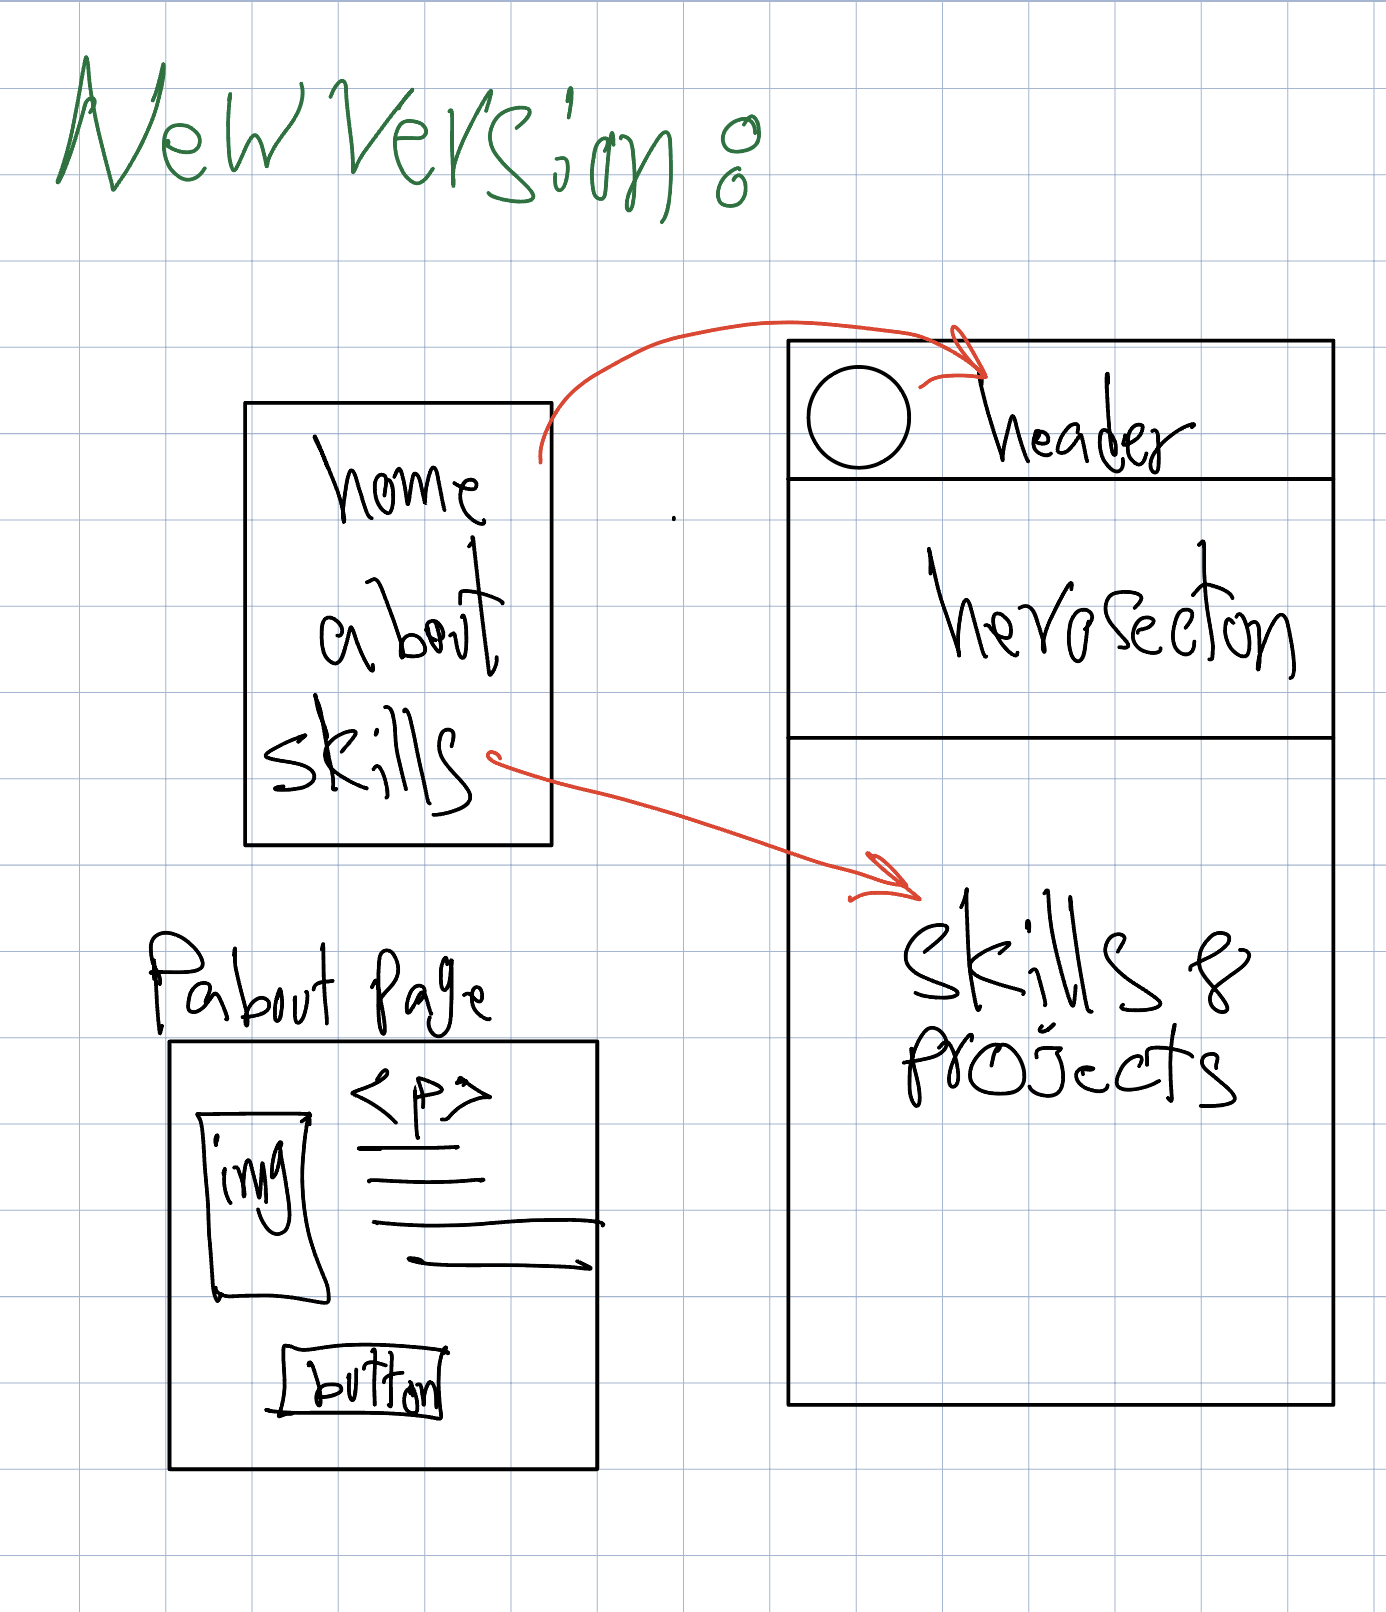 New Version:
home
about
skills
header
herosecton
skills &
projects
Pabout Page
<p>
img
button